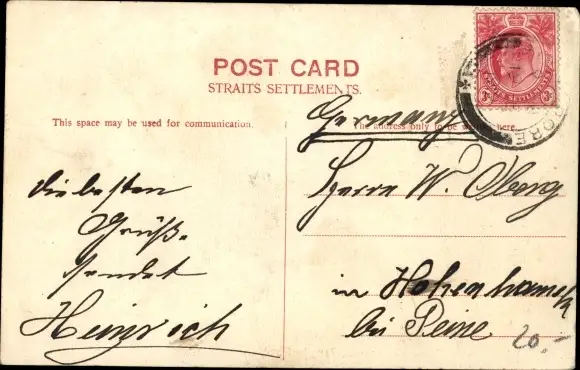 POST CARD
STRAITS SETTLEMENTS.
This space may be used for communication.
The address only to be here.
die besten
Grüße
sendet
Heinrich
Germany
Herrn W. Oberg
in Hohenhameln
bei Peine
20.-
STRAITS SETTLEMENTS
ORE